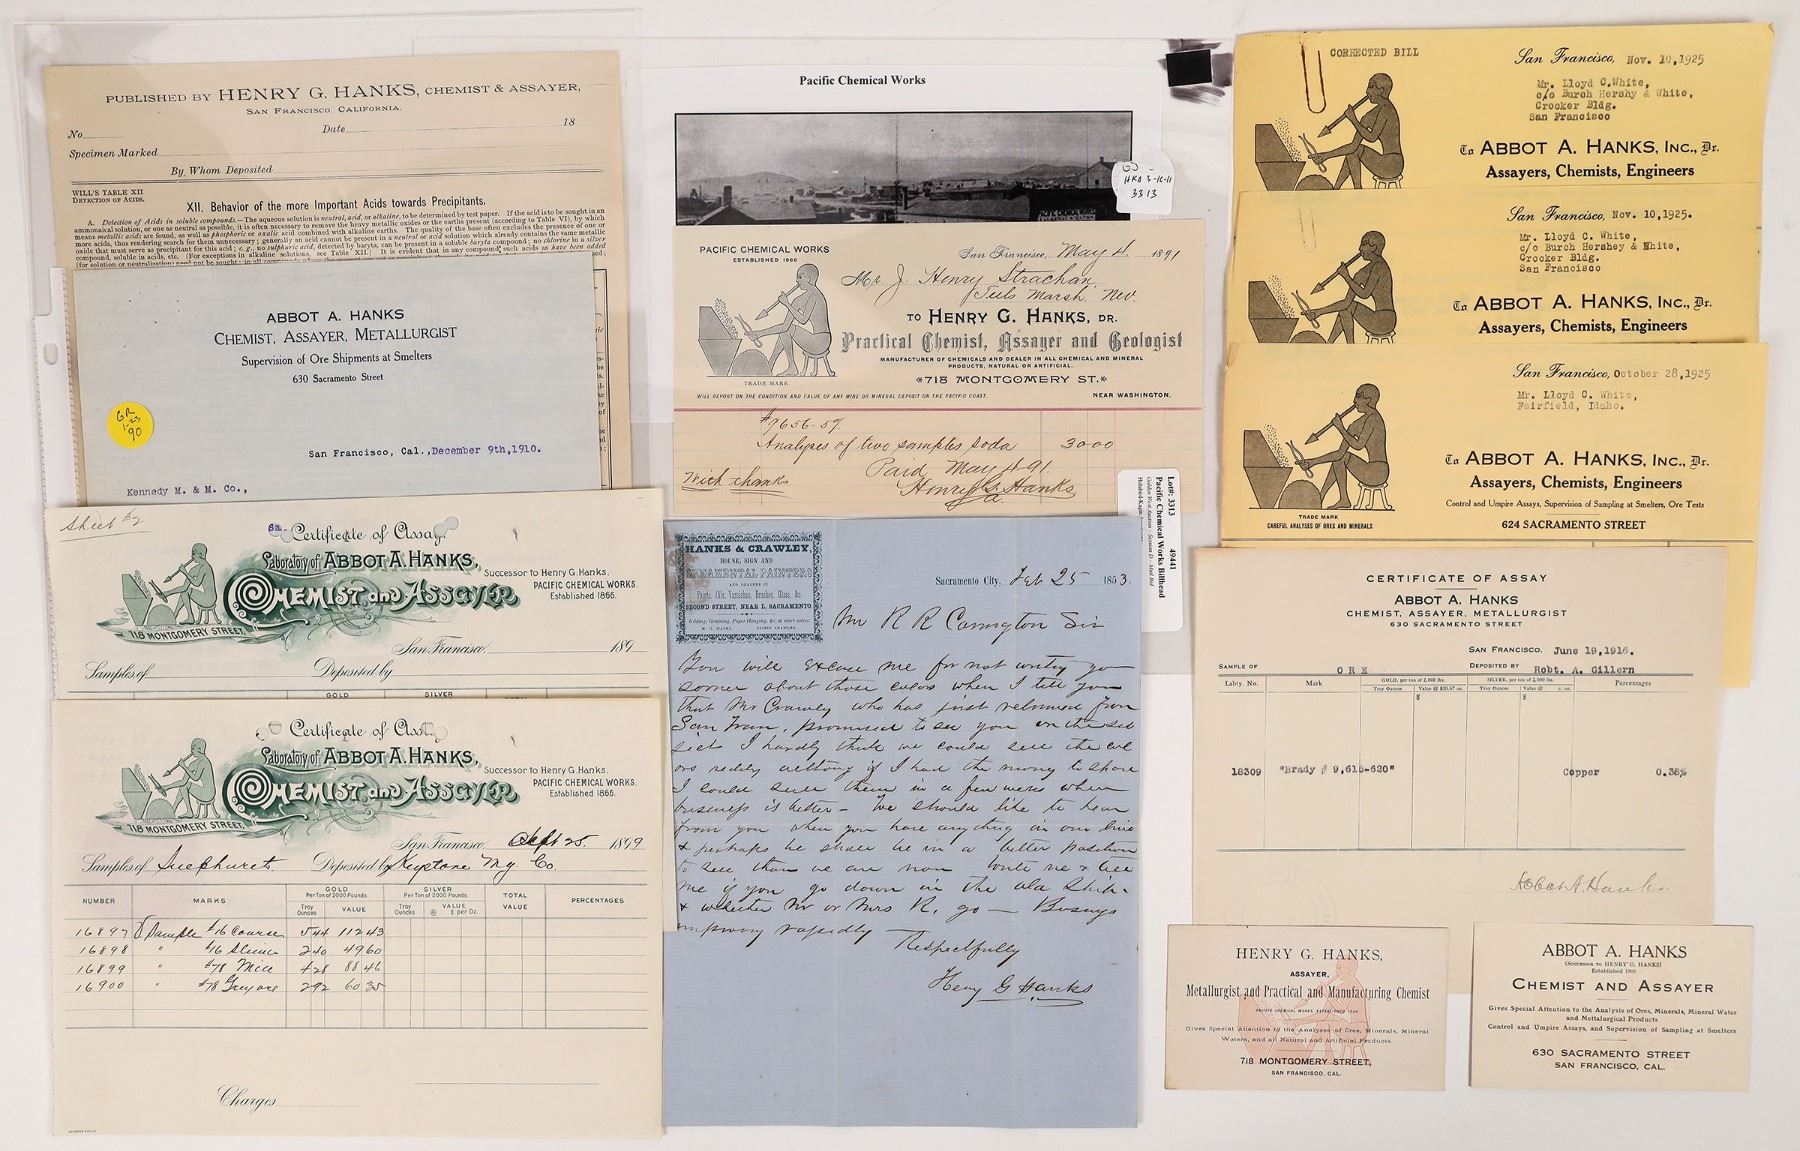 PUBLISHED BY HENRY G. HANKS, CHEMIST & ASSAYER,
SAN FRANCISCO, CALIFORNIA.
No. Date 18
Specimen Marked
By Whom Deposited
WILL'S TABLE XII
DETECTION OF ACIDS.
XII. Behavior of the more Important Acids towards Precipitants.
A. Detection of Acids in soluble compounds.—The aqueous solution is neutral, acid, or alkaline, to be determined by test paper. If the acid is to be sought in an
ammoniacal solution, or one as neutral as possible, it is often necessary to remove the heavy metallic oxides or the earths present (according to Table VI), by which
means metallic acids are found, as well as phosphoric or oxalic acid combined with alkaline earths. The quality of the base often excludes the presence of one or
more acids, thus rendering search for them unnecessary; generally an acid cannot be present in a neutral or acid solution which already contains the same metallic
oxide that must serve as precipitant for this acid; e. g., no sulphuric acid, detected by baryta, can be present in a soluble baryta compound; no chlorine in a silver
compound, soluble in acids, etc. (For exceptions in alkaline solutions, see Table XII.) It is evident that in any compound, such acids as have been added
ABBOT A. HANKS
CHEMIST, ASSAYER, METALLURGIST
Supervision of Ore Shipments at Smelters
630 Sacramento Street
GR
1-23
90
San Francisco, Cal., December 9th, 1910.
Kennedy M. & M. Co.,
Sheet #2
Certificate of Assay
Laboratory of ABBOT A. HANKS,
CHEMIST and ASSAYER
Successor to Henry G. Hanks.
PACIFIC CHEMICAL WORKS.
Established 1866.
718 MONTGOMERY STREET,
San Francisco, 189
Samples of Deposited by
GOLD SILVER
Certificate of Assay
Laboratory of ABBOT A. HANKS,
CHEMIST and ASSAYER
Successor to Henry G. Hanks.
PACIFIC CHEMICAL WORKS.
Established 1866.
718 MONTGOMERY STREET,
San Francisco, Sept 25 1899
Samples of Sulphurets Deposited by Keystone Mg Co.
NUMBER MARKS GOLD Per Ton of 2000 Pounds SILVER Per Ton of 2000 Pounds. TOTAL VALUE PERCENTAGES
Troy Ounces VALUE Troy Ounces VALUE @ ¢ per Oz.
16897 Sample #16 Course 544 112 43
16898 " #16 Slime 240 49 60
16899 " #78 Mill 428 88 46
16900 " #78 292 60 35
Charges
Pacific Chemical Works
HKA 3-16-11
3313
PACIFIC CHEMICAL WORKS
ESTABLISHED 1866
San Francisco, May 4. 1891
Mr J. Henry Strachan
Teels Marsh Nev.
TO HENRY G. HANKS, DR.
Practical Chemist, Assayer and Geologist
MANUFACTURER OF CHEMICALS AND DEALER IN ALL CHEMICAL AND MINERAL
PRODUCTS, NATURAL OR ARTIFICIAL.
718 MONTGOMERY ST.
TRADE MARK
WILL REPORT ON THE CONDITION AND VALUE OF ANY MINE OR MINERAL DEPOSIT ON THE PACIFIC COAST. NEAR WASHINGTON.
#9656-57.
Analyses of two samples soda 30 00
Paid May 4 91.
With thanks Henry G. Hanks
Lot#: 3313 49441
Pacific Chemical Works Billhead
HANKS & CRAWLEY,
HOUSE, SIGN AND
ORNAMENTAL PAINTERS
AND DEALERS IN
Paints, Oils, Varnishes, Brushes, Glass, &c.
SECOND STREET, NEAR L, SACRAMENTO.
Gilding, Graining, Paper Hanging, &c. at short notice.
H. G. HANKS. EDWIN CRAWLEY.
Sacramento City, Feb 25 1853.
Mr R R Carrington Sir
You will excuse me for not writing you
sooner about those colors when I tell you
that Mr Crawley who has just returned from
San Fran, promised to see you on the sub
ject I hardly think we could sell the col
ors if I had the money to spare
I could sell them in a few weeks when
business is better – We should like to hear
from you when you have anything in our line
& perhaps we shall be in a better position
to sell than we are now write me & tell
me if you go down in the old Ship
& whether Mr or Mrs R. go —
improving rapidly —
Respectfully
Henry G Hanks
CORRECTED BILL
San Francisco, Nov. 10, 1925
Mr. Lloyd C. White,
c/o Burch Hershy & White,
Crocker Bldg.
San Francisco
To ABBOT A. HANKS, INC., Dr.
Assayers, Chemists, Engineers
San Francisco, Nov. 10, 1925.
Mr. Lloyd C. White,
c/o Burch Hershey & White,
Crocker Bldg.
San Francisco
To ABBOT A. HANKS, INC., Dr.
Assayers, Chemists, Engineers
San Francisco, October 28, 1925
Mr. Lloyd C. White,
Fairfield, Idaho.
To ABBOT A. HANKS, INC., Dr.
Assayers, Chemists, Engineers
Control and Umpire Assays, Supervision of Sampling at Smelters, Ore Tests
TRADE MARK
CAREFUL ANALYSES OF ORES AND MINERALS
624 SACRAMENTO STREET
CERTIFICATE OF ASSAY
ABBOT A. HANKS
CHEMIST, ASSAYER, METALLURGIST
630 SACRAMENTO STREET
SAN FRANCISCO, June 19, 1916.
SAMPLE OF ORE DEPOSITED BY Robt. A. Gillern
Labty. No. Mark GOLD, per ton of 2,000 lbs. SILVER, per ton of 2,000 lbs. Percentages
Troy Ounces Value @ $20.67 oz. Troy Ounces Value @ c. oz.
$ $
18309 "Brady # 9,615-620" Copper 0.38%
Abbot A. Hanks
HENRY G. HANKS,
ASSAYER,
Metallurgist and Practical and Manufacturing Chemist
PACIFIC CHEMICAL WORKS. ESTABLISHED 1866
Gives Special Attention to the Analyses of Ores, Minerals, Mineral
Waters, and all Natural and Artificial Products.
718 MONTGOMERY STREET,
SAN FRANCISCO, CAL.
ABBOT A. HANKS
(Successor to HENRY G. HANKS)
Established 1866
CHEMIST AND ASSAYER
Gives Special Attention to the Analysis of Ores, Minerals, Mineral Water
and Mettalurgical Products
Control and Umpire Assays, and Supervision of Sampling at Smelters
630 SACRAMENTO STREET
SAN FRANCISCO, CAL.